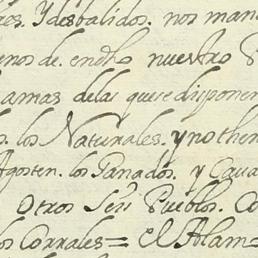 res. Y desbalidos. nos man
enos de en dho nuestro
amas delas que se disponen
s. los Naturales. y no then
Agosten. los Ganados. y Cava
Otros Señ Pueblos. Co
los Corrales = el Alam=